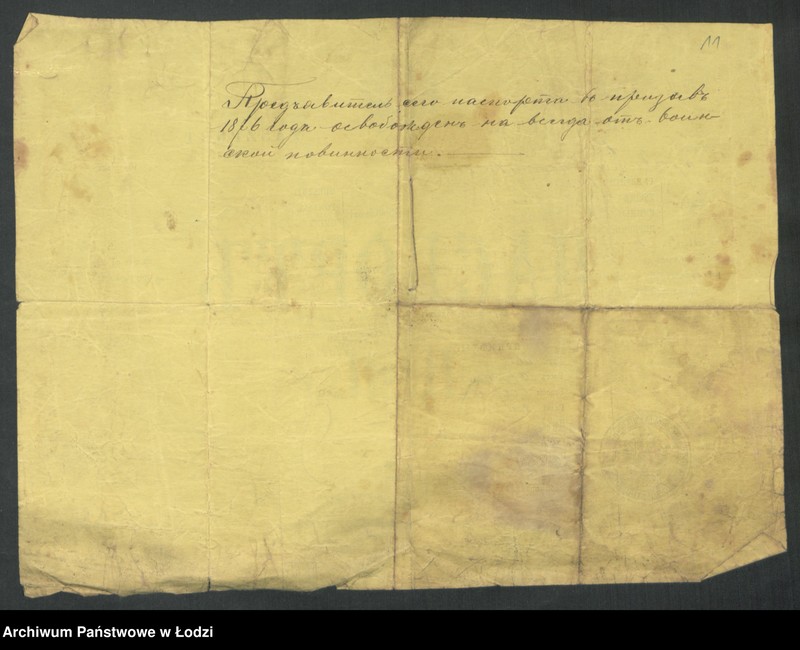 11
Предъявитель сего паспорта въ призывъ
1876 года освобожденъ на всегда отъ воин-
ской повинности.
Archiwum Państwowe w Łodzi